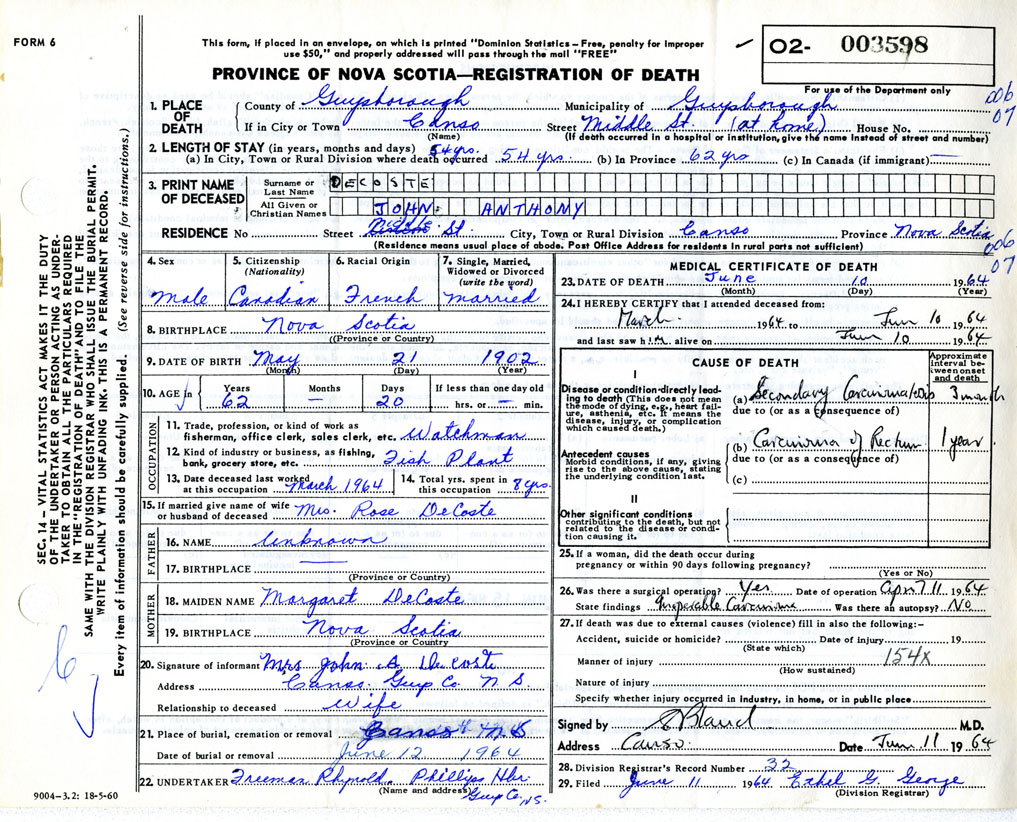 FORM 6
This form, if placed in an envelope, on which is printed "Dominion Statistics – Free, penalty for improper
use $50," and properly addressed will pass through the mail "FREE"
02- 003598
For use of the Department only
PROVINCE OF NOVA SCOTIA—REGISTRATION OF DEATH
006
07
1. PLACE OF DEATH
County of Guysborough Municipality of Guysborough
If in City or Town Canso Street Middle St. (at home) House No.
(Name) (If death occurred in a hospital or institution, give name instead of street and number)
2. LENGTH OF STAY (in years, months and days) 54 yrs.
(a) In City, Town or Rural Division where death occurred 54 yrs. (b) In Province 62 yrs (c) In Canada (if immigrant) —
3. PRINT NAME OF DECEASED
Surname or Last Name DECOSTE
All Given or Christian Names JOHN ANTHONY
RESIDENCE No Street St City, Town or Rural Division Canso Province Nova Scotia
(Residence means usual place of abode. Post Office Address for residents in rural parts not sufficient)
006
07
4. Sex Male
5. Citizenship (Nationality) Canadian
6. Racial Origin French
7. Single, Married, Widowed or Divorced (write the word) Married
8. BIRTHPLACE Nova Scotia
((Province or Country)
9. DATE OF BIRTH May 21 1902
(Month) (Day) (Year)
10. AGE in Years 62 Months — Days 20 If less than one day old hrs. or — min.
OCCUPATION
11. Trade, profession, or kind of work as fisherman, office clerk, sales clerk, etc. Watchman
12. Kind of industry or business, as fishing, bank, grocery store, etc. Fish Plant
13. Date deceased last worked at this occupation March 1964
14. Total yrs. spent in this occupation 8 yrs.
15. If married give name of wife or husband of deceased Mrs. Rose DeCoste
FATHER
16. NAME Unknown
17. BIRTHPLACE —
(Province or Country)
MOTHER
18. MAIDEN NAME Margaret DeCoste
19. BIRTHPLACE Nova Scotia
(Province or Country)
20. Signature of informant Mrs John A DeCoste
Address Canso Guys Co. N S.
Relationship to deceased Wife
21. Place of burial, cremation or removal Canso N S
Date of burial or removal June 12 1964
22. UNDERTAKER Freeman Rhynold Phillips Hbr
(Name and address) Guys Co, NS.
MEDICAL CERTIFICATE OF DEATH
23. DATE OF DEATH June 10 1964
(Month) (Day) (Year)
24. I HEREBY CERTIFY that I attended deceased from:
March 1964 to Jun 10 1964
and last saw him alive on Jun 10 1964
CAUSE OF DEATH
Approximate interval between onset and death
I
Disease or condition directly leading to death (This does not mean the mode of dying, e.g., heart failure, asthenia, etc. It means the disease, injury, or complication which caused death.)
(a) Secondary Carcinomatosis 3 month
due to (or as a consequence of)
Antecedent causes
Morbid conditions, if any, giving rise to the above cause, stating the underlying condition last.
(b) Carcinoma of Rectum 1 year
due to (or as a consequence of)
(c)
II
Other significant conditions
contributing to the death, but not related to the disease or condition causing it.
25. If a woman, did the death occur during
pregnancy or within 90 days following pregnancy?
(Yes or No)
26. Was there a surgical operation? Yes Date of operation 1964
State findings Inoperable Carcinoma Was there an autopsy? No
27. If death was due to external causes (violence) fill in also the following:–
Accident, suicide or homicide? Date of injury 19
(State which)
Manner of injury 154X
(How sustained)
Nature of injury
Specify whether injury occurred in industry, in home, or in public place
Signed by M.D.
Address Canso. Date Jun 11 1964
28. Division Registrar's Record Number 32
29. Filed June 11 1964 Ethel G. George
(Division Registrar)
SEC. 14 – VITAL STATISTICS ACT MAKES IT THE DUTY
OF THE UNDERTAKER OR PERSON ACTING AS UNDERTAKER
TO OBTAIN ALL THE PARTICULARS REQUIRED
IN THE "REGISTRATION OF DEATH" AND TO FILE THE
SAME WITH THE DIVISION REGISTRAR WHO SHALL ISSUE THE BURIAL PERMIT.
WRITE PLAINLY WITH UNFADING INK. THIS IS A PERMANENT RECORD.
Every item of information should be carefully supplied. (See reverse side for instructions.)
9004–3.2: 18-5-60